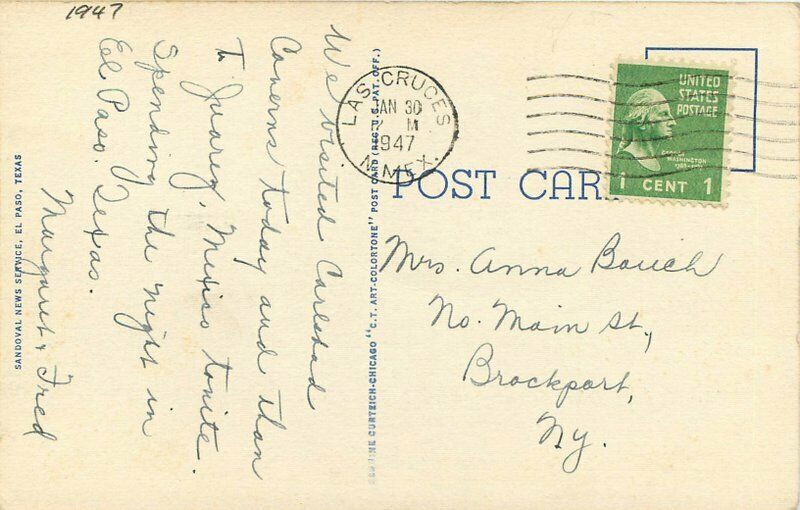 1947
We visited Carlsbad
Caverns today and than
To Juarez, Mexico tonite.
Spending the night in
El Paso. Texas.
Margaret & Fred
SANDOVAL NEWS SERVICE, EL PASO, TEXAS
CURTEICH-CHICAGO "C.T. ART-COLORTONE" POST CARD (REG. U.S. PAT. OFF.)
LAS CRUCES
JAN 30
M
1947
N.MEX.
UNITED
STATES
POSTAGE
GEORGE
WASHINGTON
1 CENT 1
POST CAR
Mrs. Anna Bouch
No. Main St.,
Brockport,
Ny.